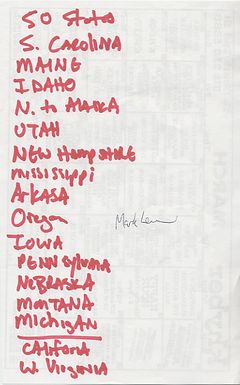 50 States
S. CAROLINA
MAINE
IDAHO
N. to ALASKA
UTAH
NEW HAMPSHIRE
MISSISSIPPI
ARKASA
Oregon
Mark
IOWA
PENNSYLVANIA
NEBRASKA
MONTANA
MICHIGAN
CALIFORNIA
W. VIRGINIA